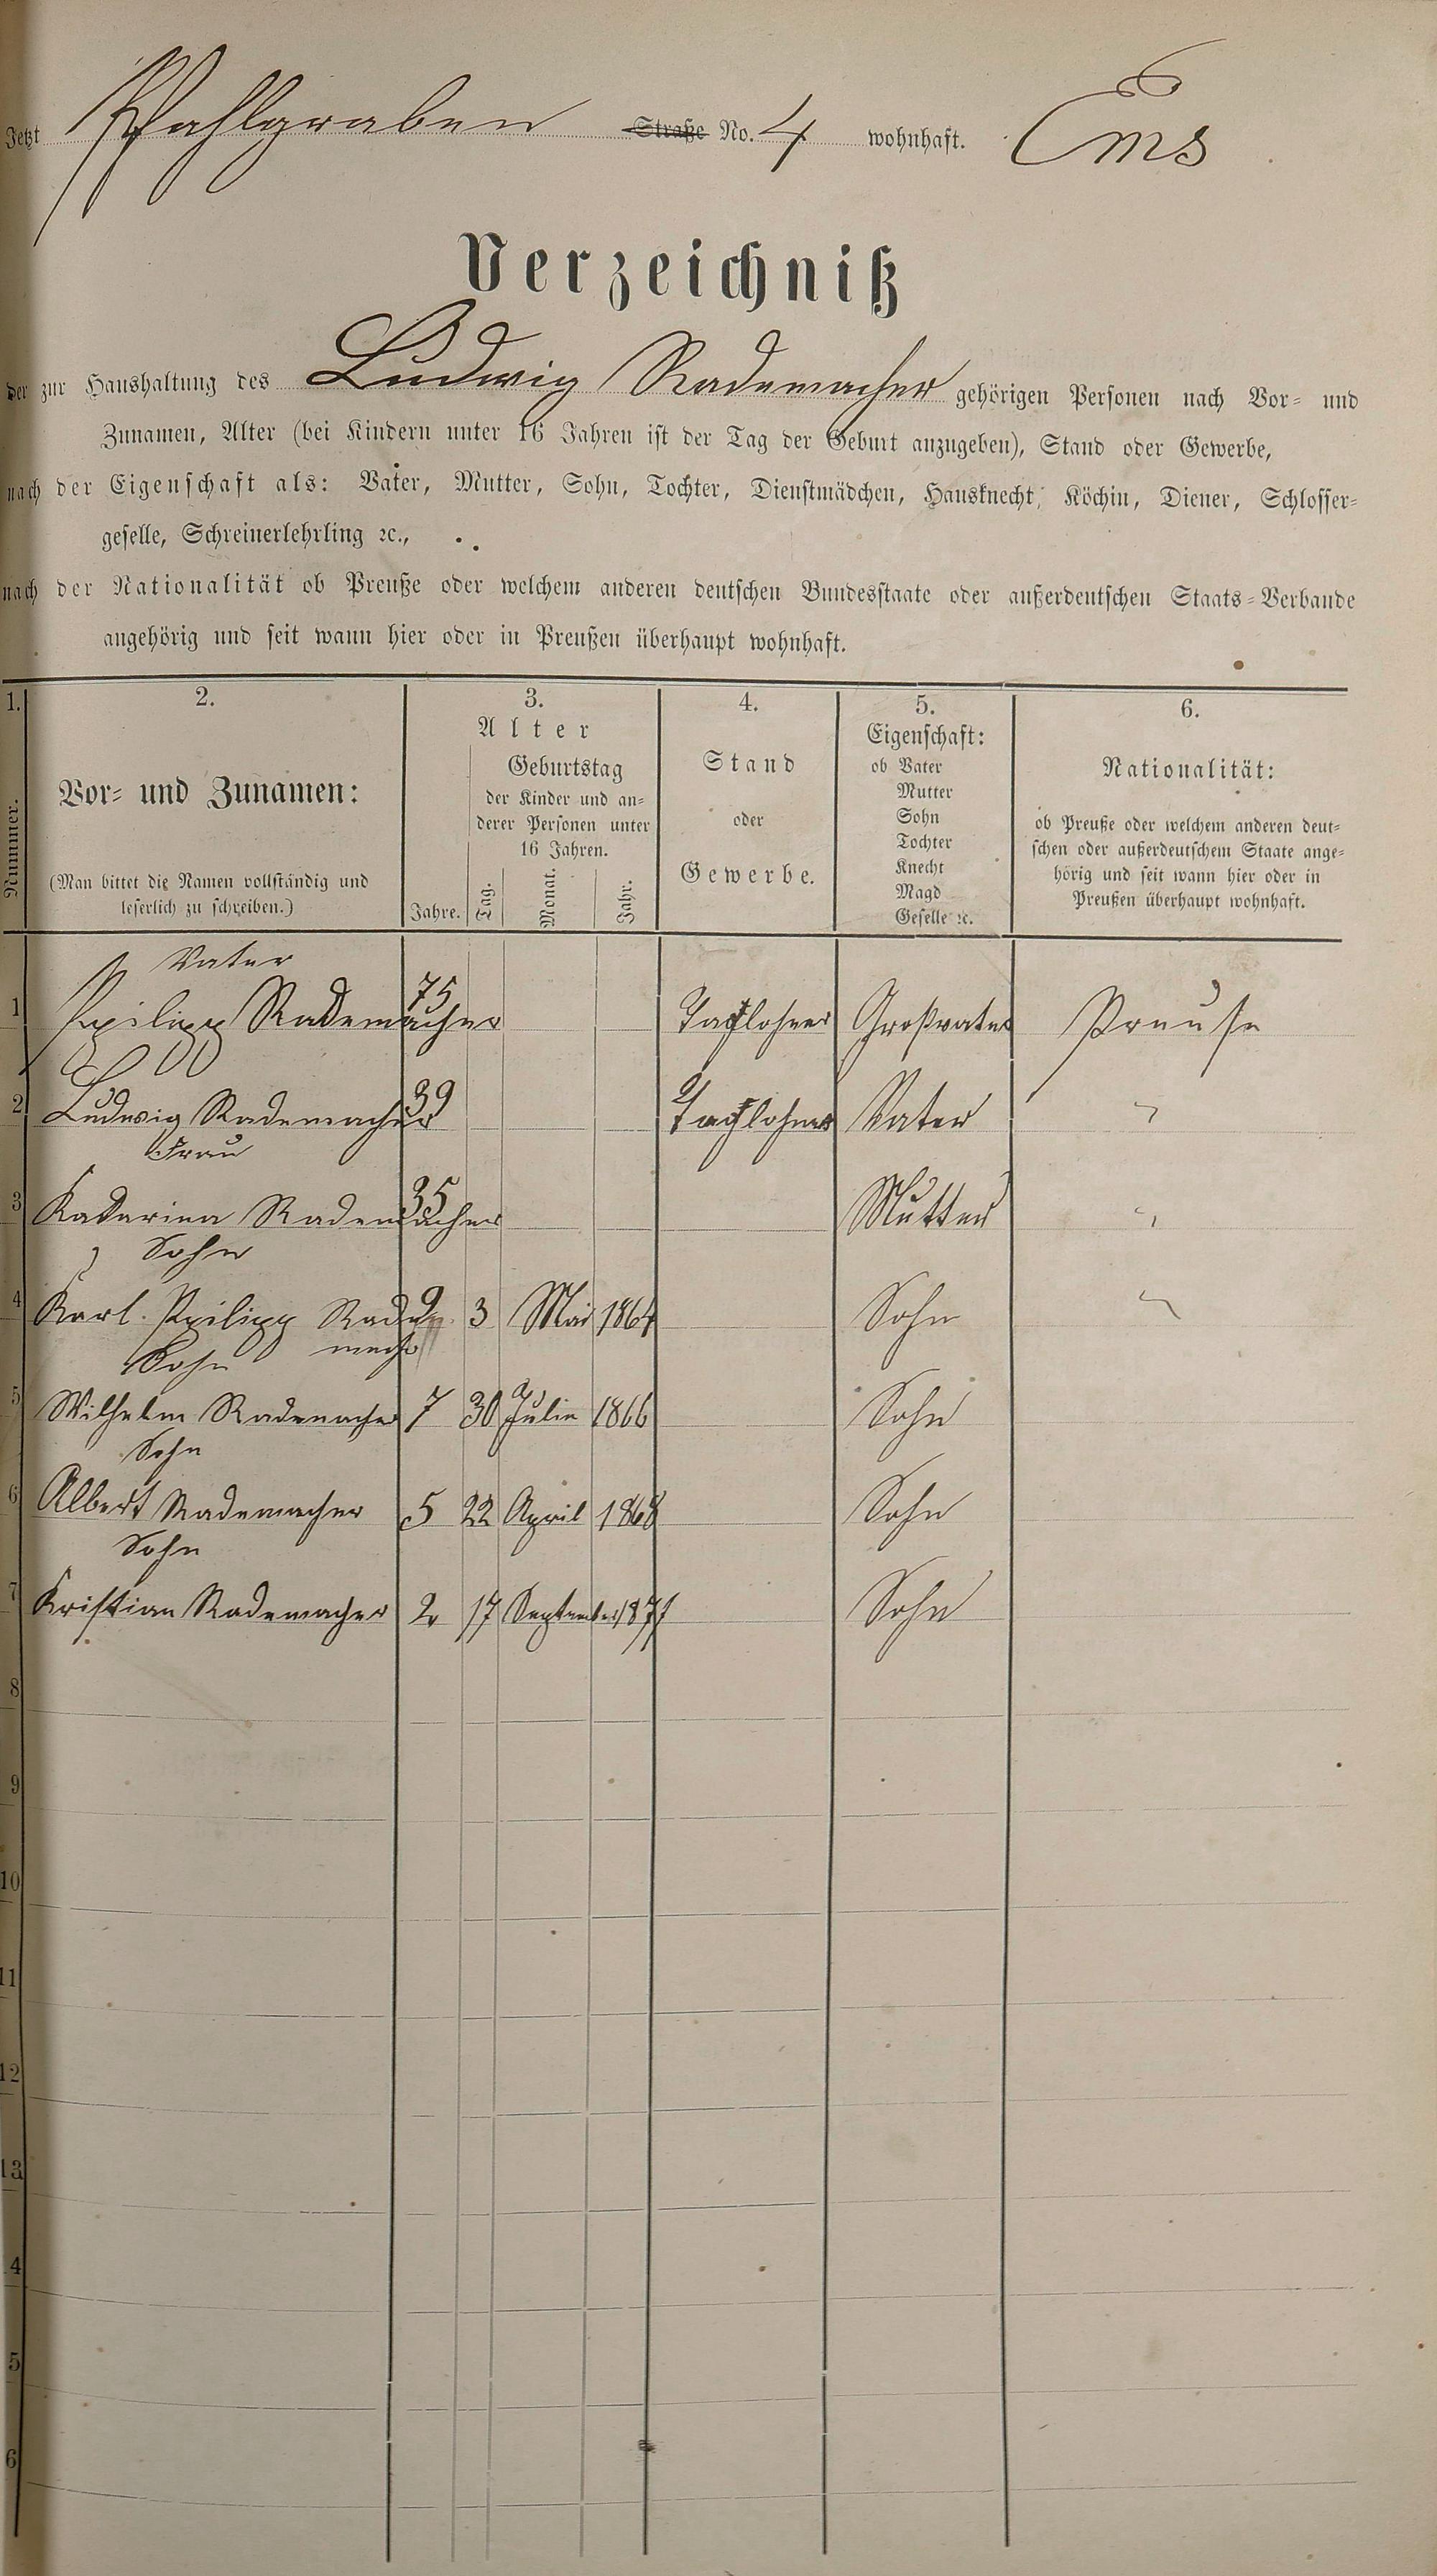 Jetzt Pfahlgraben Straße No. 4 wohnhaft. Ems
Verzeichniß
der zur Haushaltung des Ludwig Rademacher gehörigen Personen nach Vor- und
Zunamen, Alter (bei Kindern unter 16 Jahren ist der Tag der Geburt anzugeben), Stand oder Gewerbe,
nach der Eigenschaft als: Vater, Mutter, Sohn, Tochter, Dienstmädchen, Hausknecht, Köchin, Diener, Schlosser-
geselle, Schreinerlehrling ꝛc.,
nach der Nationalität ob Preuße oder welchem anderen deutschen Bundesstaate oder außerdeutschen Staats-Verbande
angehörig und seit wann hier oder in Preußen überhaupt wohnhaft.
1. 2. 3. 4. 5. 6.
Nummer.
Vor- und Zunamen:
(Man bittet die Namen vollständig und
leserlich zu schreiben.)
Alter
Geburtstag
der Kinder und an-
derer Personen unter
16 Jahren.
Jahre. Tag. Monat. Jahr.
Stand
oder
Gewerbe.
Eigenschaft:
ob Vater
Mutter
Sohn
Tochter
Knecht
Magd
Geselle ꝛc.
Nationalität:
ob Preuße oder welchem anderen deut-
schen oder außerdeutschem Staate ange-
hörig und seit wann hier oder in
Preußen überhaupt wohnhaft.
Vater
1 Philipp Rademacher 75 Taglohner Großvater Preuse
2 Ludwig Rademacher 39 Taglohner Vater "
Frau
3 Katarina Rademacher 35 Mutter "
Sohn
4 Karl Philipp Rade 9 3 Mai 1864 Sohn "
macher
Sohn
5 Wilhelm Rademacher 7 30 Julie 1866 Sohn
Sohn
6 Albert Rademacher 5 22 April 1868 Sohn
Sohn
7 Kristian Rademacher 2 17 September 1871 Sohn
8
9
10
11
12
13
4
5
6